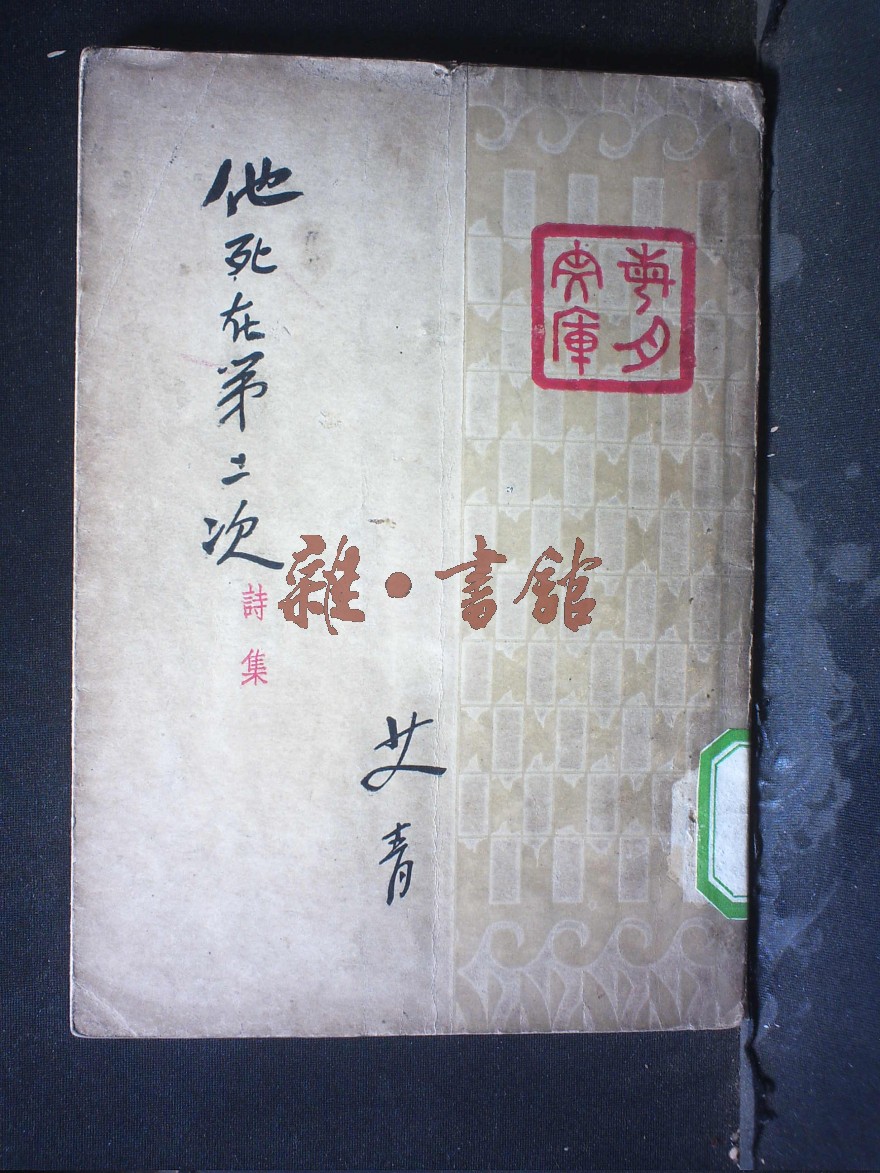 每月
文庫
他死在第二次
詩集
艾青
雜·書館